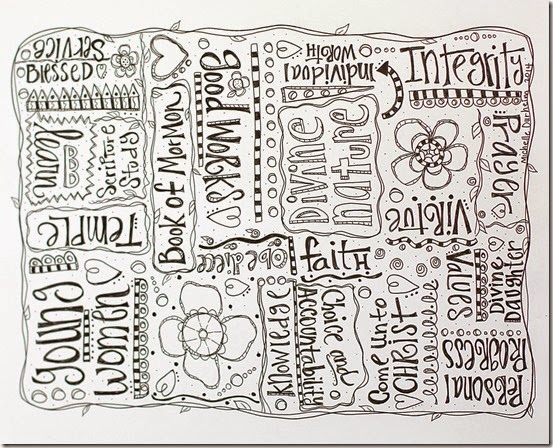 Service
Blessed
learn
Scripture
Study
Temple
Young
Women
Book of Mormon
Good Works!
Individual
Worth
Divine
Nature
Integrity
Michelle Darhalua 2014
Prayer
Virtue
Values
Divine
Daughter
Faith
Obedience
Knowledge
Choice and
Accountability
Come unto
CHRIST
Personal
Progress